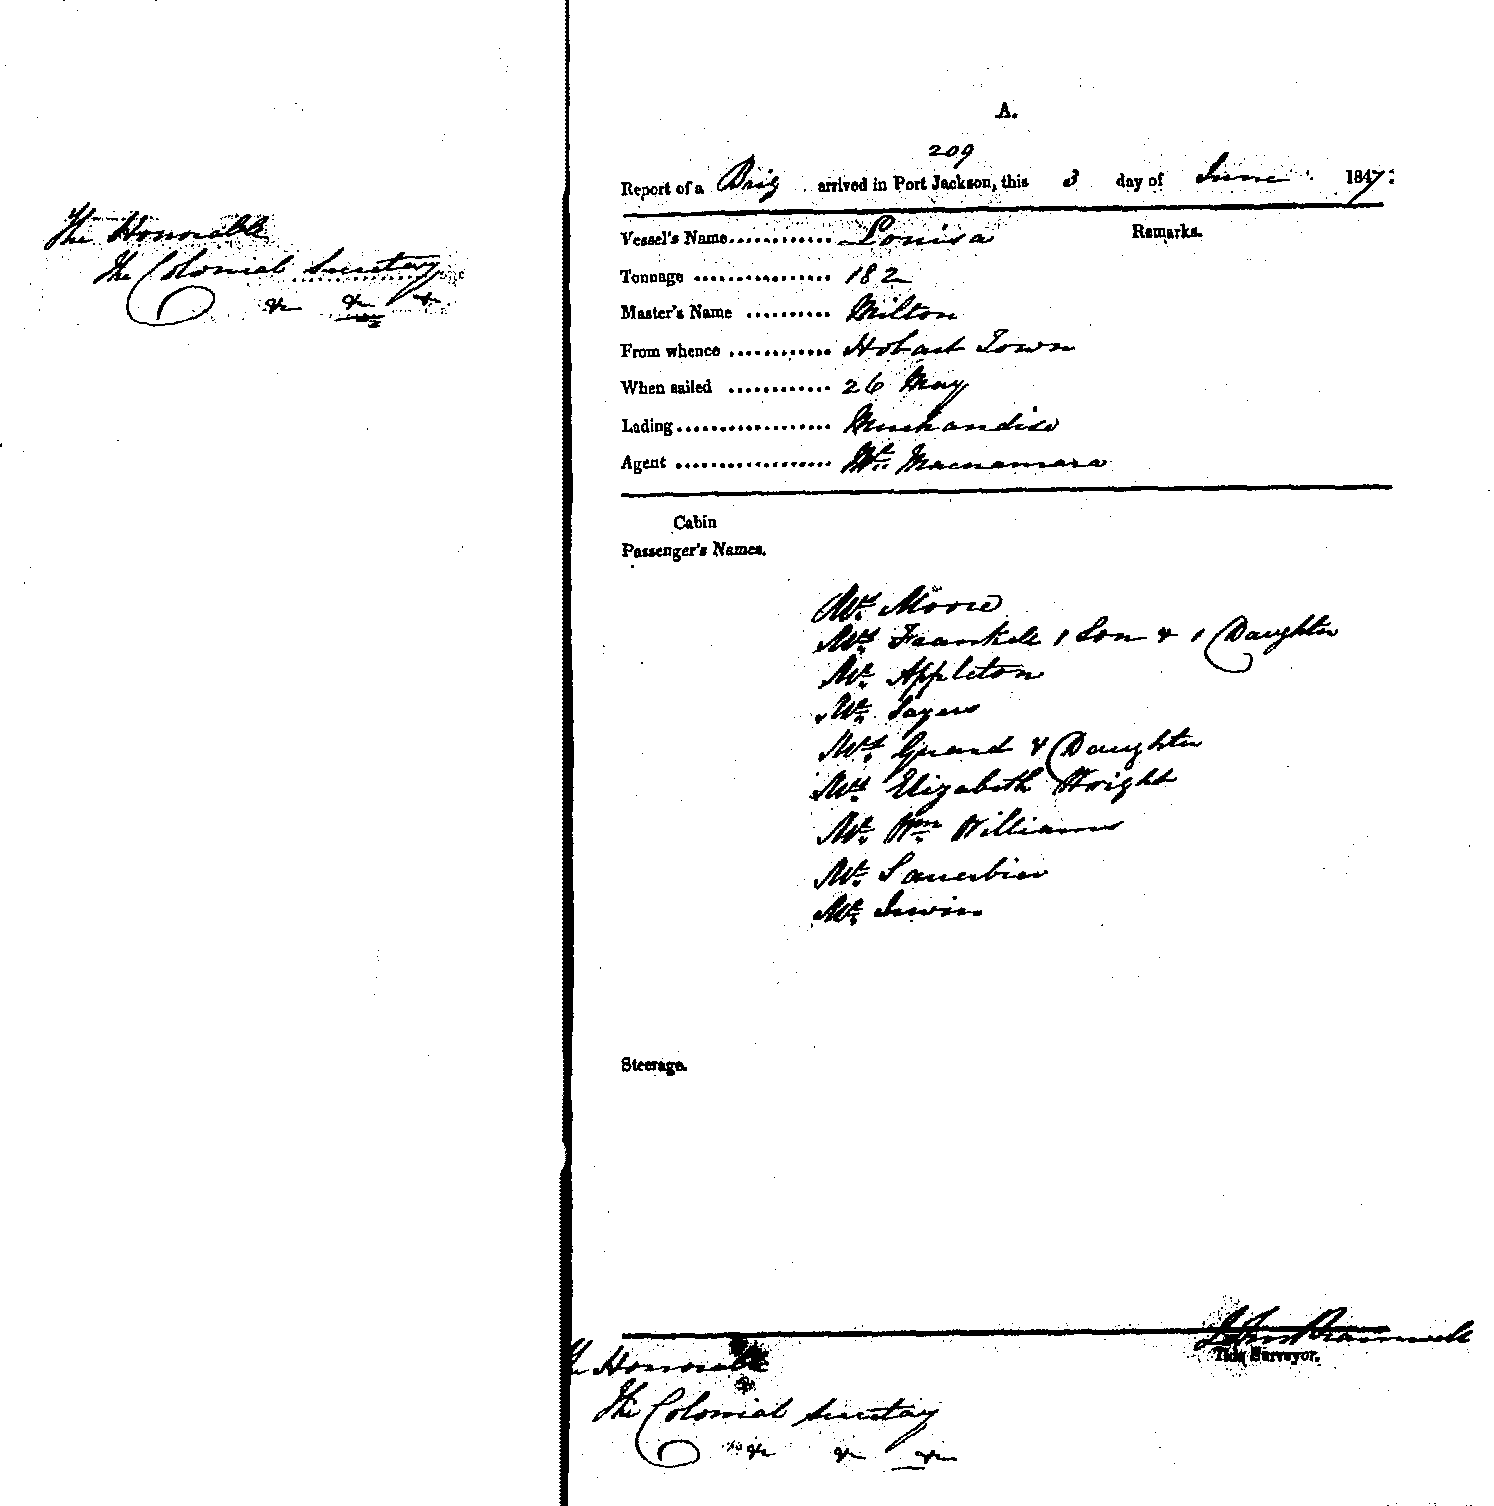 The Honorable
The Colonial Secretary
&c &c &c
A.
209
Report of a Brig arrived in Port Jackson, this 3 day of June 1847:
Vessel's Name............ Louisa Remarks.
Tonnage ............... 182
Master's Name .......... Milton
From whence ............ Hobart Town
When sailed ............ 26 May
Lading.................. Merchandise
Agent .................. Mr. Macnamara
Cabin
Passenger's Names.
Mrs. Moore
Mrs. 1 Son & 1 Daughter
Mr. Appleton
Mr. Sayers
Mrs. & Daughter
Mrs. Elizabeth Wright
Mr. Wm. Williams
Mr. Sauerbier
Mr. Irwin
Steerage.
John Bramwell
Tide Surveyor.
Honorable
The Colonial Secretary
&c &c &c